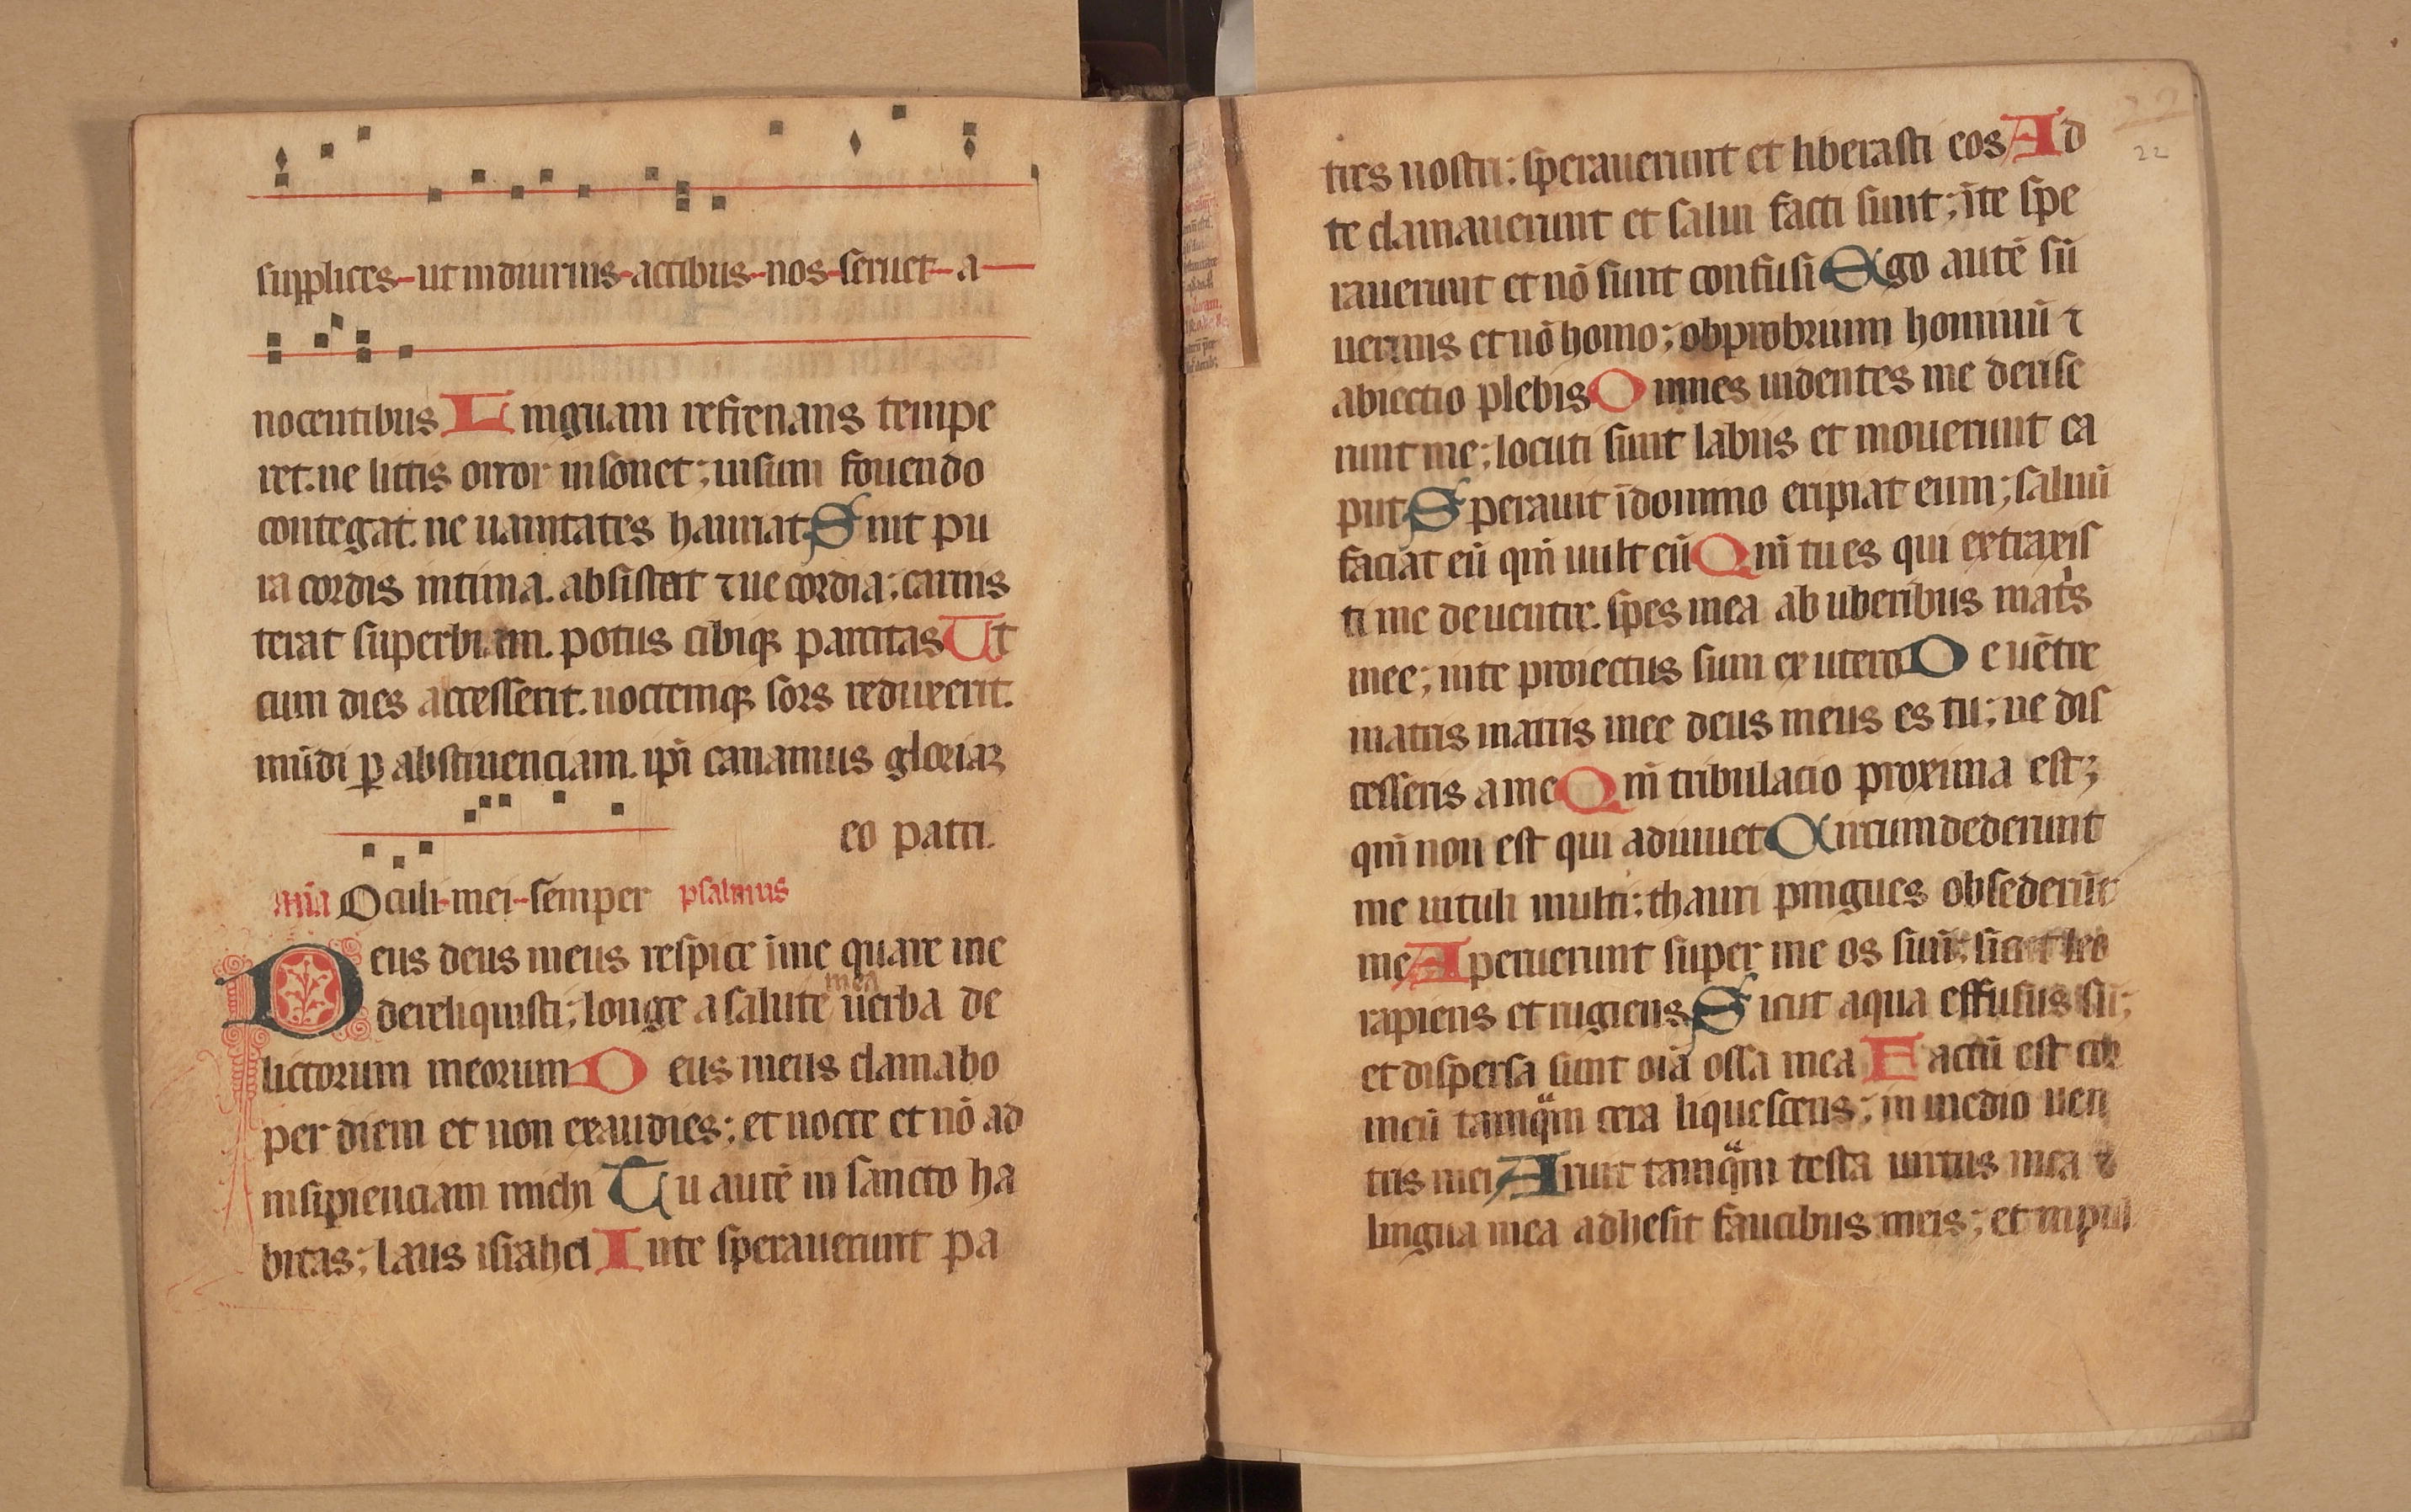 supplices ut in diurnis actibus nos seruet a
nocentibus Linguam refrenans tempe
ret. ne littis orror insonet; uisum fouendo
contegat. ne uanitates hauriat Sint pu
ra cordis intima. absistat ⁊ uecordia; carnis
terat superbiam. potus cibiqꝫ parcitas Ut
cum dies accesserit. noctemqꝫ sors reduxerit.
mūdi ꝑ abstinenciam. ip̄i canamus gloriaꝫ
eo patri.
Oculi mei semper psalmus
Deus deus meus respice ī me quare me
mea
dereliquisti; longe a salute uerba de
lictorum meorum Deus meus clamabo
per diem et non exaudies; et nocte et nō ad
insipienciam michi Tu autē in sancto ha
bitas; laus israhel In te sperauerunt pa
22
tres nostri; sperauerunt et liberasti eos Ad
te clamauerunt et salui facti sunt; ī te spe
rauerunt et nō sunt confusi Ego autē sū
uermis et nō homo; obprobrium hominū ⁊
abiectio plebis Omnes uidentes me derise
runt me; locuti sunt labiis et mouerunt ca
put Sperauit ī domino eripiat eum; saluū
faciat eū qm̄ uult eū Qm̄ tu es qui extraxis
ti me de uentre. spes mea ab uberibus mat's
mee; in te proiectus sum ex utero De uētre
matris matris mee deus meus es tu; ne dis
cesseris a me Qm̄ tribulacio proxima est;
qm̄ non est qui adiuuet Circumdederunt
me uituli multi; thauri pingues obsederūt
me Aperuerunt super me os suū; sicut leo
rapiens et rugiens Sicut aqua effusus sū;
et dispersa sunt oīa ossa mea Factū est cor
meū tamqᵃm cera liquescens; in medio uen
tris mei Aruit tamqᵃm testa uirtus mea ⁊
lingua mea adhesit faucibus meis; et in pul